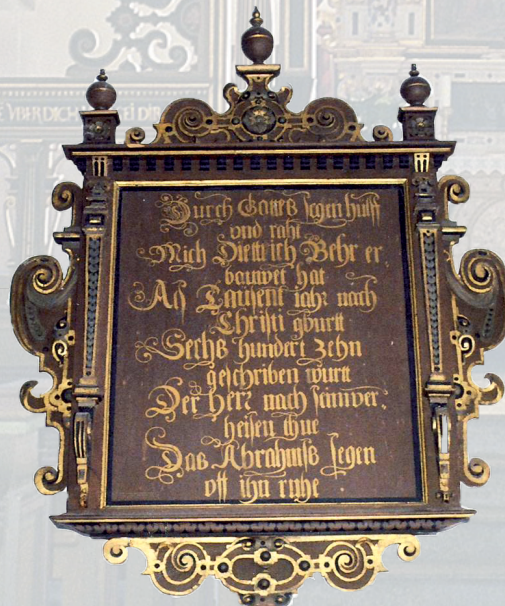 VBER DICH
Durch Gottes segen hülff
vnd raht
Mich Diettrich Behr er
bauwet hat
Als Tausent iahr nach
Christi gburtt
Sechs hundert zehn
geschriben wurtt
Der herr nach seim ver:
heisen thue
Das Abrahmß segen
off ihn ruhe